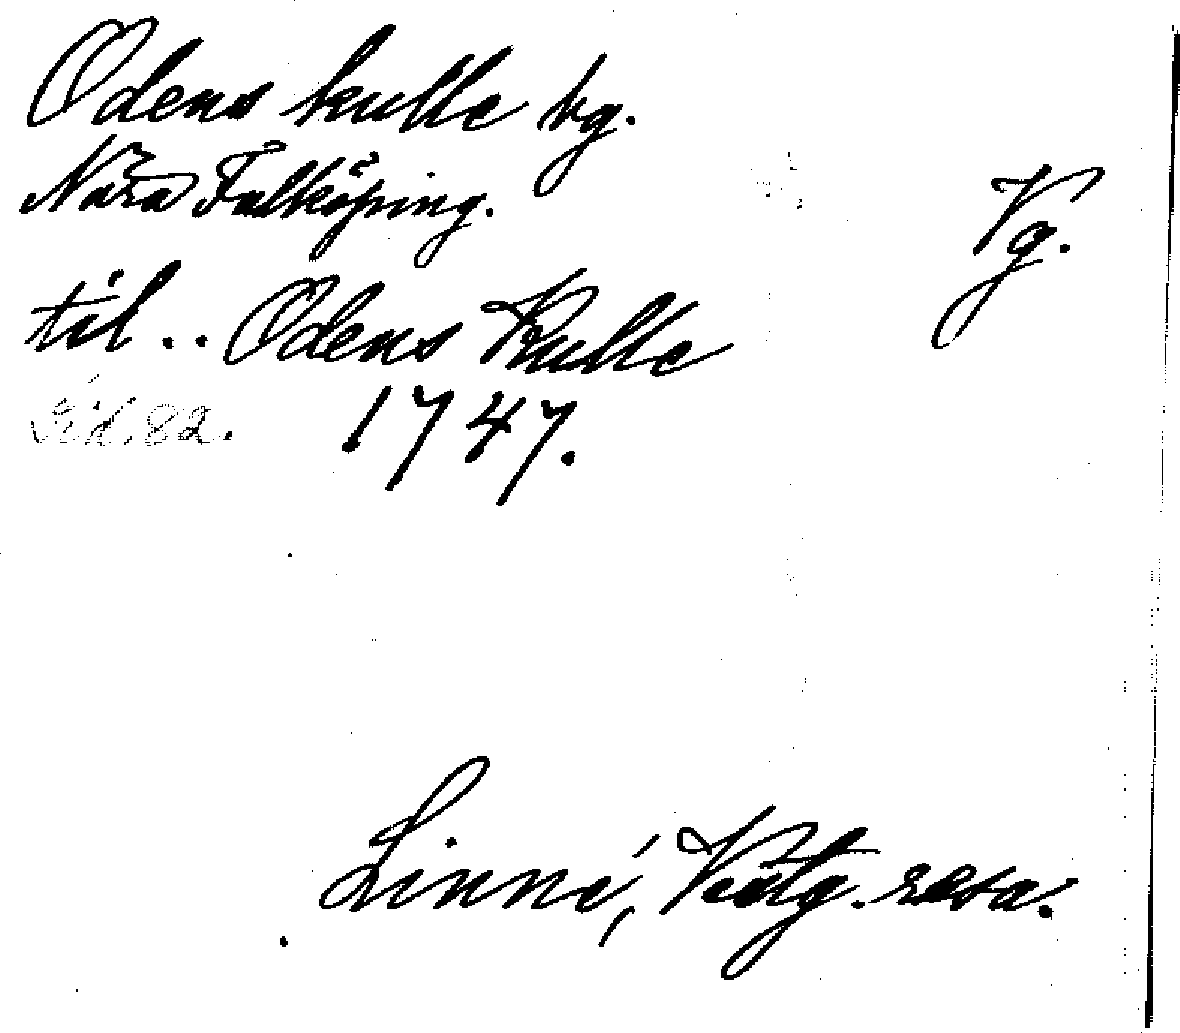 Odens kulle bg.
Nära Falköping.
Vg.
til .. Odens Kulle
Sid. 82. 1747.
Linné, Västg. resa.